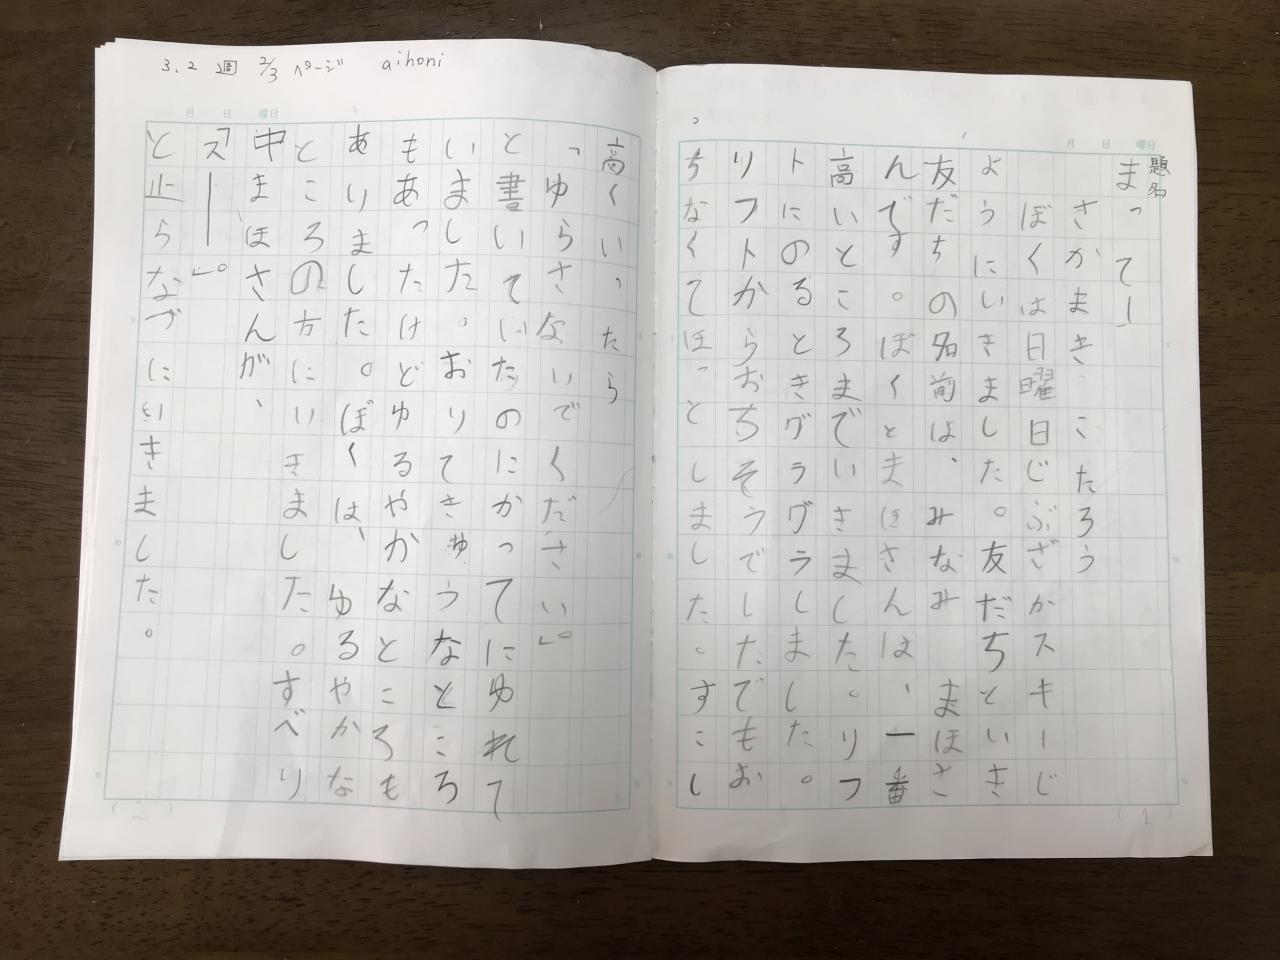 3.2 週 2/3 ページ aihoni
月 日 曜日
題名
まってー
さかまき こたろう
ぼくは日曜日じぶざかスキーじ
ようにいきました。友だちといき
友だちの名前は、みなみ まほさ
んです。ぼくとまほさんは、一番
高いところまでいきました。リフ
トにのるときグラグラしました。
リフトからおちそうでしたでもお
ちなくてほっとしました。すこし
(1)
月 日 曜日
高くいったら
「ゆらさないでください」。
と書いていたのにかってにゆれて
いました。おりてきゅうなところ
もあったけどゆるやかなところも
ありました。ぼくは、ゆるやかな
ところの方にいきました。すべり
中まほさんが、
「ズー」。
と止らなづに行きました。
(2)